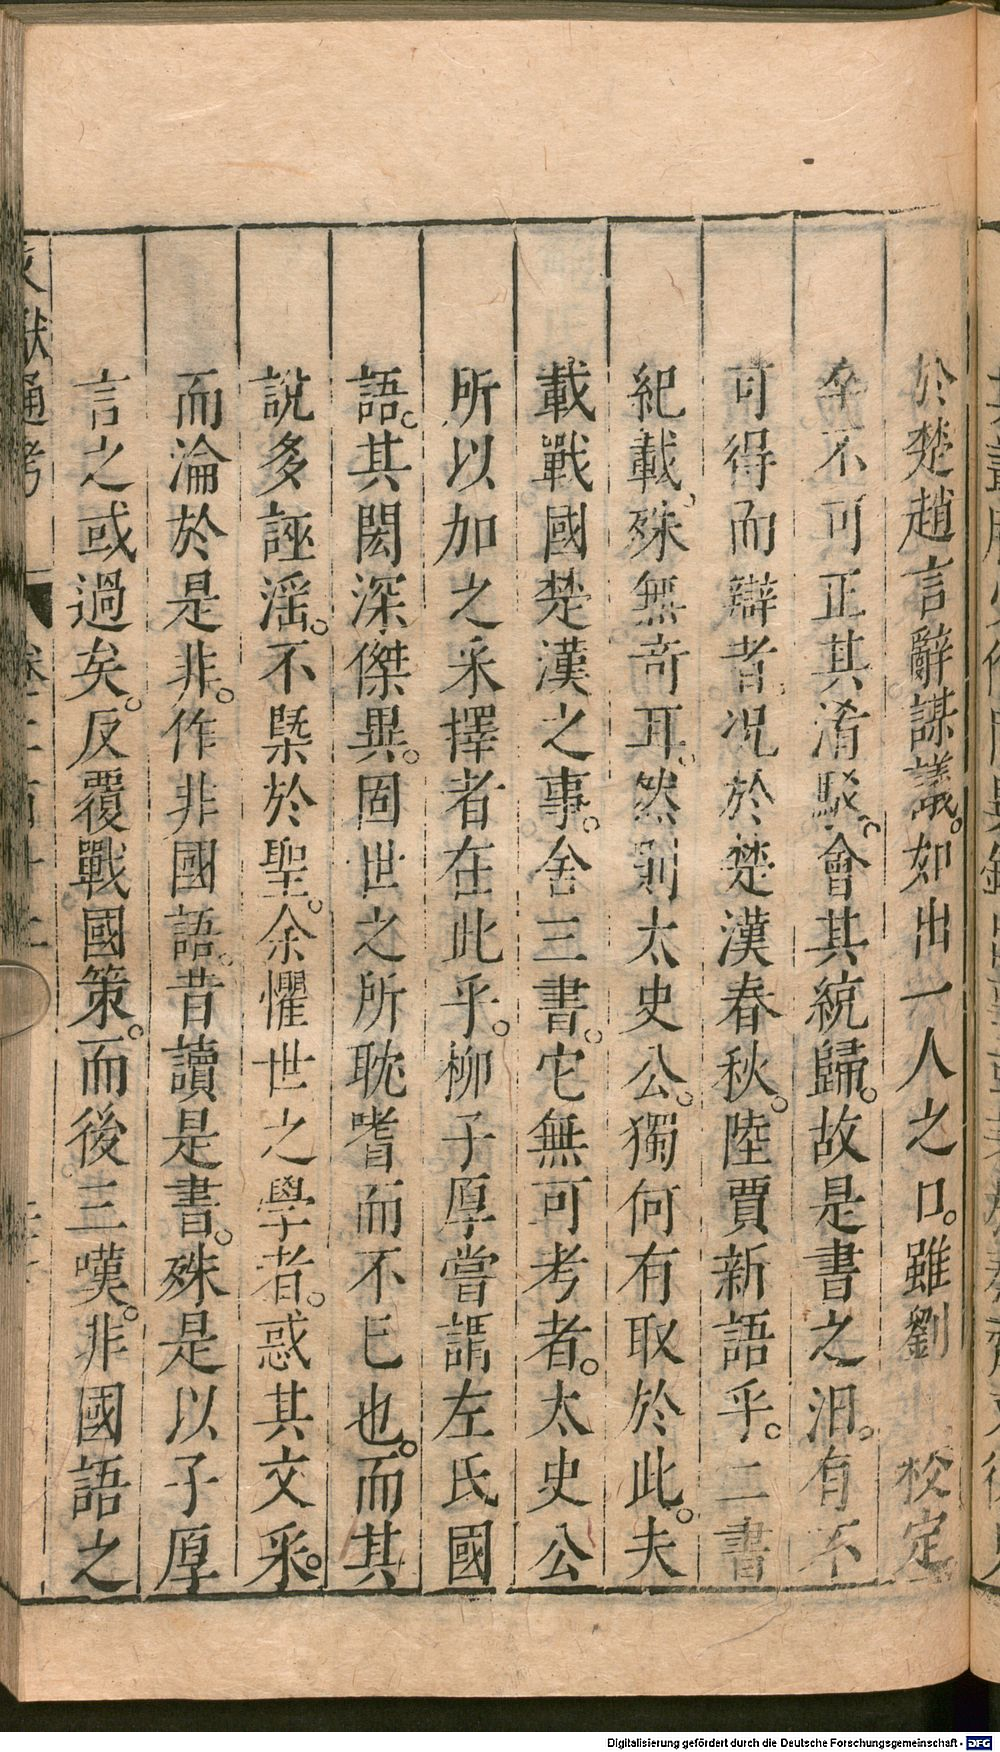 於楚趙言辭謀議。如出一人之口。雖劉向校定。
卒不可正其淆駁。會其統歸。故是書之汨。有不
可得而辯者。況於楚漢春秋。陸賈新語乎。二書
紀載、殊無奇耳。然則太史公。獨何有取於此。夫
載戰國楚漢之事。舍三書。它無可考者。太史公
所以加之采擇者在此乎。柳子厚嘗謂左氏國
語。其閎深傑異。固世之所耽嗜而不已也。而其
說多誣淫。不槩於聖。余懼世之學者。惑其文采。
而淪於是非。作非國語。昔讀是書。殊是以子厚
言之或過矣。反覆戰國策。而後三嘆。非國語之
文獻通考 卷二百
Digitalisierung gefördert durch die Deutsche Forschungsgemeinschaft - DFG